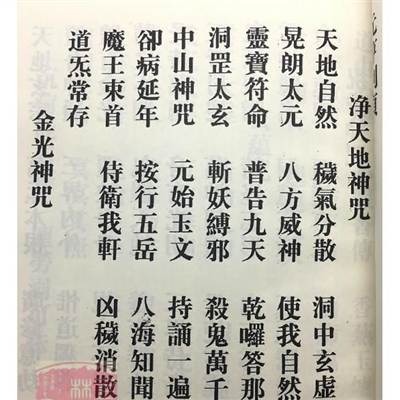 净天地神咒
天地自然 穢氣分散 洞中玄虛
晃朗太元 八方威神 使我自然
靈寶符命 普告九天 乾囉答那
洞罡太玄 斬妖縛邪 殺鬼萬千
中山神咒 元始玉文 持誦一遍
卻病延年 按行五岳 八海知聞
魔王束首 侍衛我軒 凶穢消散
道炁常存
金光神咒
林